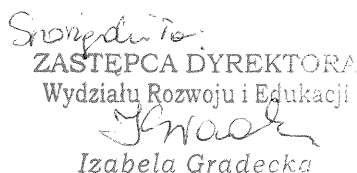 ZASTĘPCA DYREKTORA
Wydziału Rozwoju i Edukacji
Izabela Gradecka